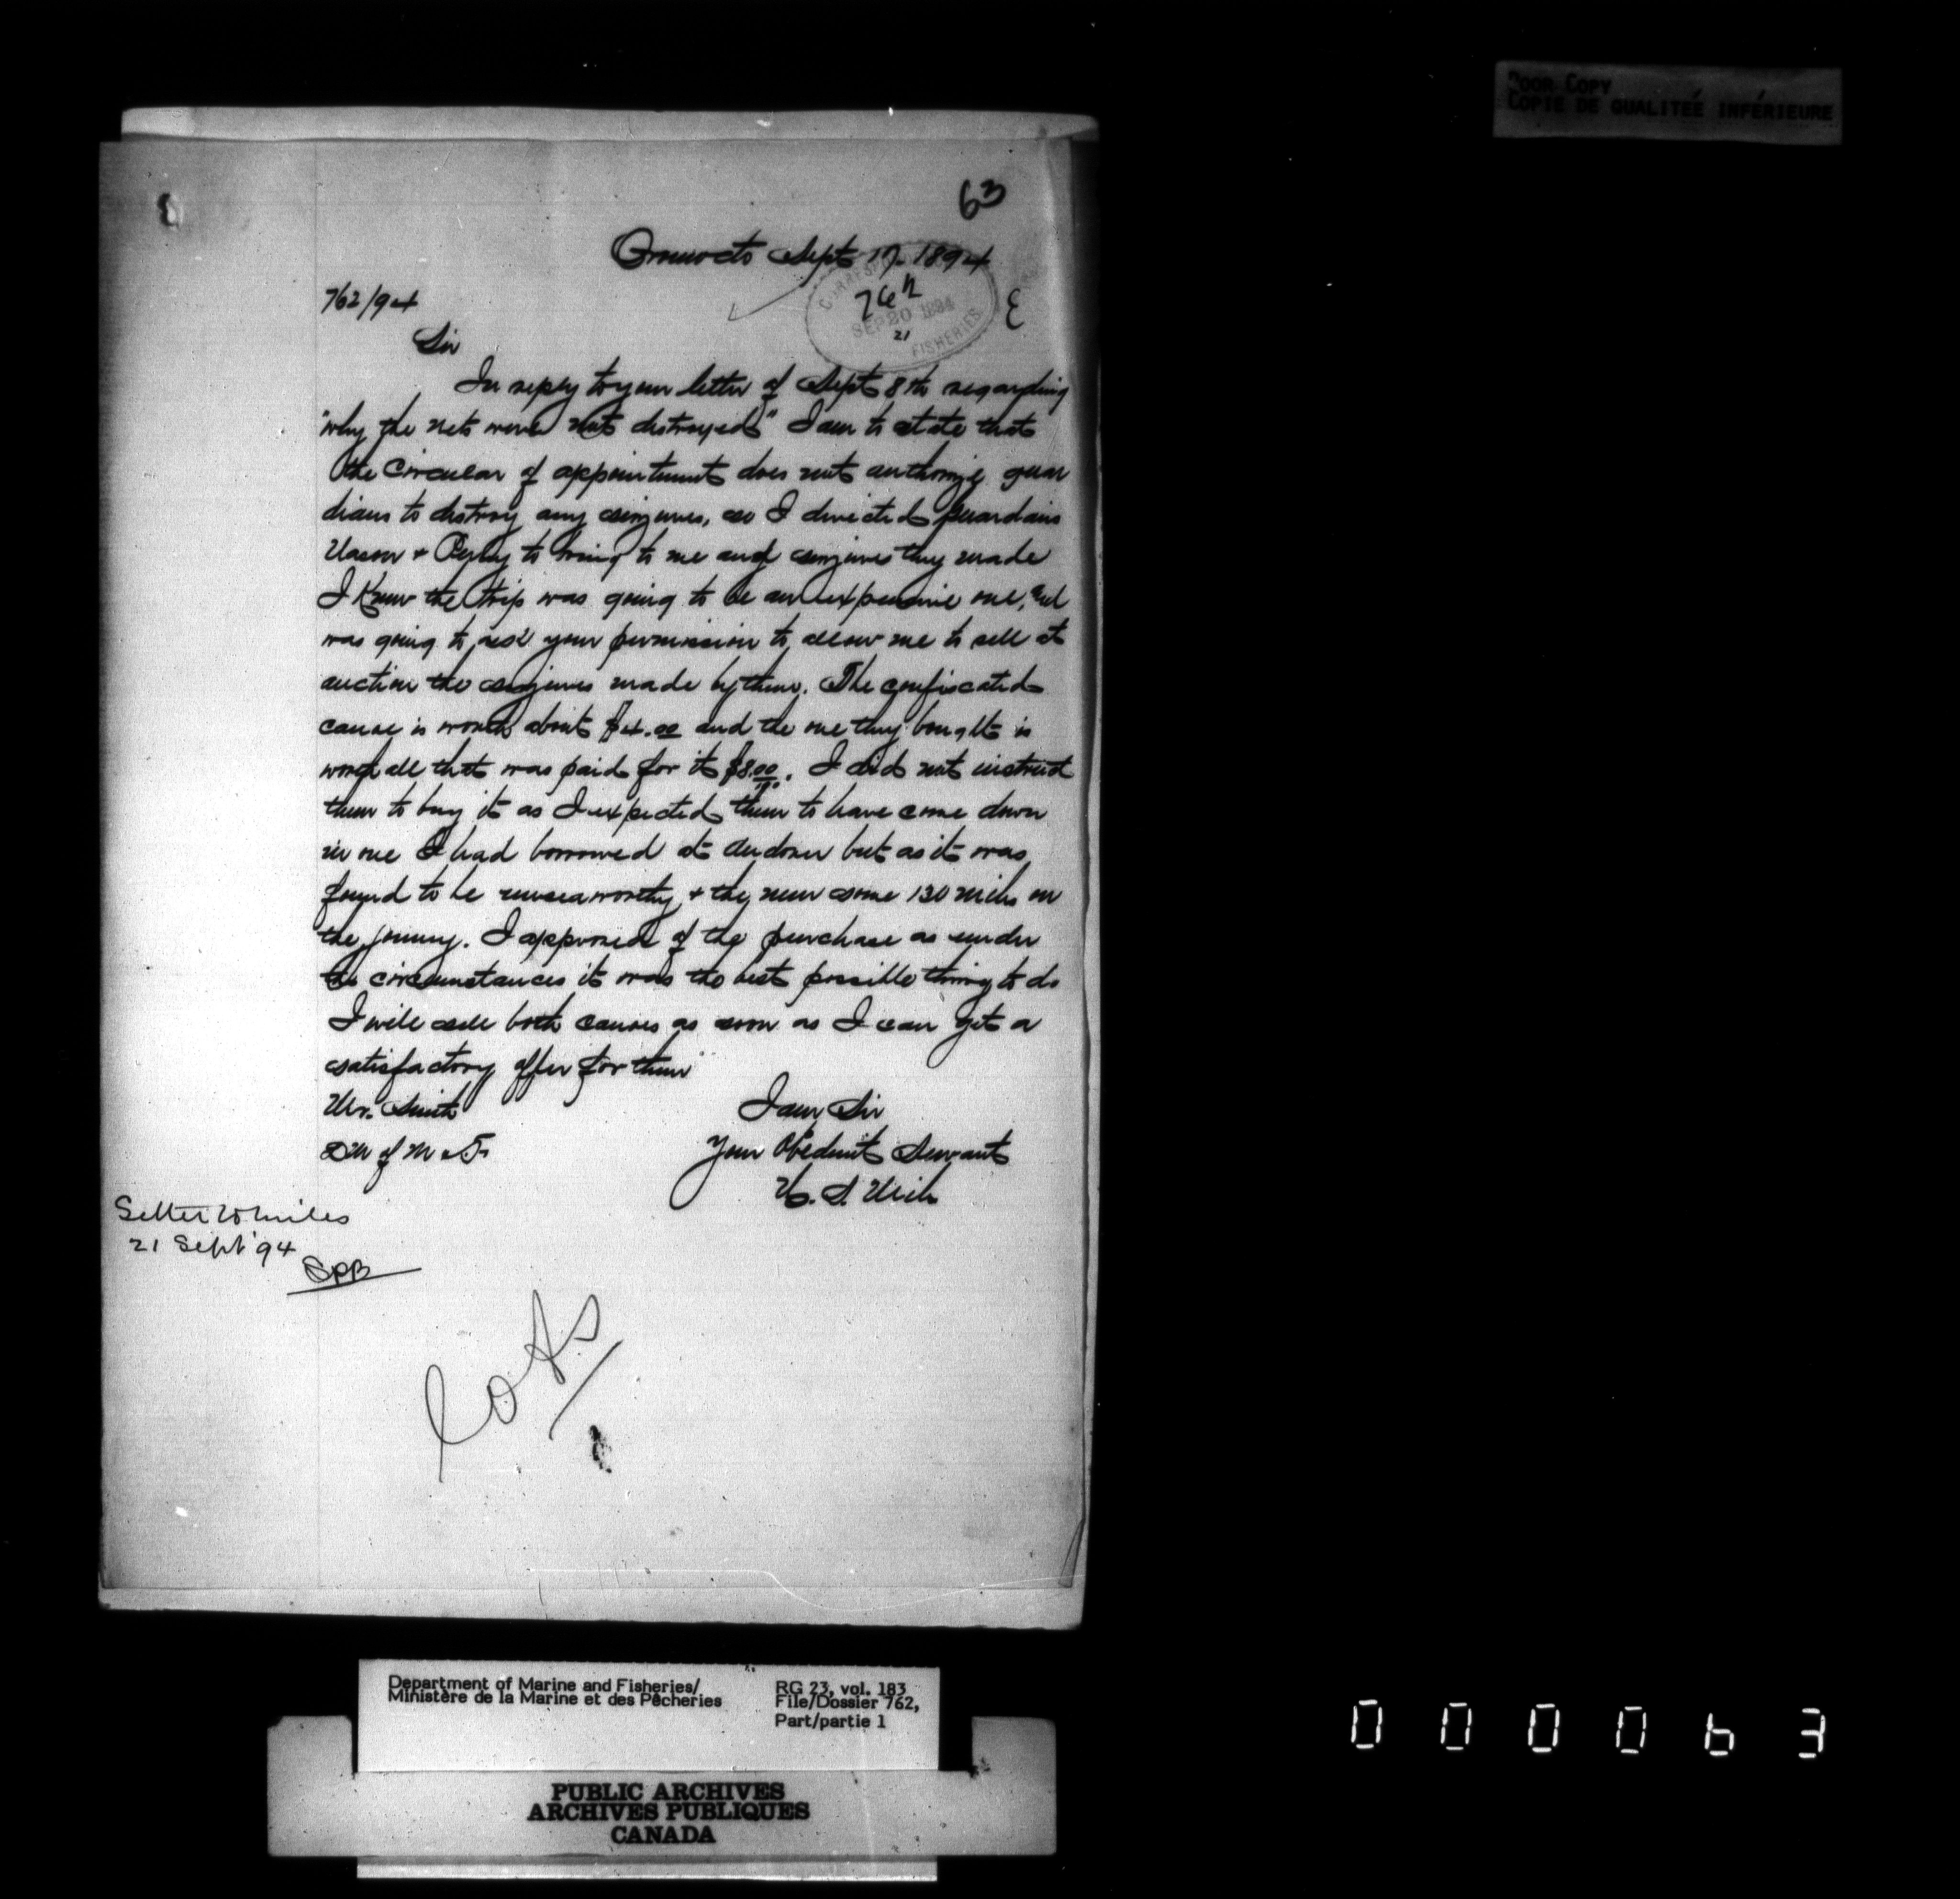 POOR COPY
COPIE DE QUALITEÉ INFÉRIEURE
63
Oromocto Sept 17. 1894
762/94
SEP 20 1894
21
FISHERIES
Sir
In reply to your letter of Sept 8th regarding
"why the nets were not destroyed" I am to state that
the Circular of appointment does not authorize guar
dians to destroy any seizures, so I directed guardians
& Perley to bring to me any seizures they made
I Knew the trip was going to be an expensive one, and
was going to ask your permission to allow me to sell at
auction the seizures made by them. The confiscated
canoe is worth about $4.00 and the one they bought is
worth all that was paid for it $8.00. I did not instruct
them to buy it as I expected them to have come down
in one I had borrowed at Andover but as it was
found to be unseaworthy & they were some 130 miles on
the journey. I approved of the purchase as under
the circumstances it was the best possible thing to do
I will sell both canoes as soon as I can get a
satisfactory offer for them
Mr. Smith
I am, Sir
DM of M & F
Your Obedient Servant
H. S. Miles
Letter to Miles
21 Sept '94
SPB
Department of Marine and Fisheries/
Ministère de la Marine et des Pêcheries
RG 23, vol. 183
File/Dossier 762,
Part/partie 1
PUBLIC ARCHIVES
ARCHIVES PUBLIQUES
CANADA
000063